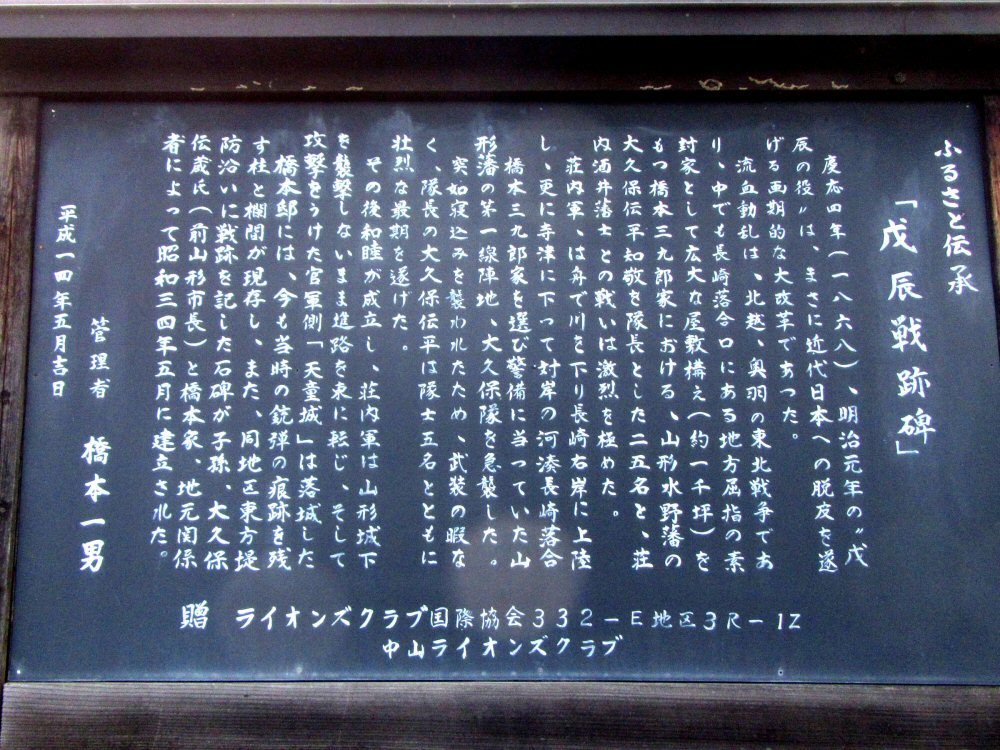 ふるさと伝承
「戊辰戦跡碑」
慶応四年（一八六八）、明治元年の〝戊
辰の役〟は、まさに近代日本への脱皮を遂
げる画期的な大改革であった。
流血動乱は、北越、奥羽の東北戦争であ
り、中でも長崎落合口にある地方屈指の素
封家として広大な屋敷構え（約一千坪）を
もつ橋本三九郎家における、山形水野藩の
大久保伝平知敬を隊長とした二五名と、荘
内酒井藩士との戦いは激烈を極めた。
荘内軍、は舟で川を下り長崎右岸に上陸
し、更に寺津に下って対岸の河湊長崎落合
橋本三九郎家を選び警備に当っていた山
形藩の第一線陣地、大久保隊を急襲した。
突如寝込みを襲われたため、武装の暇な
く、隊長の大久保伝平は隊士五名とともに
壮烈な最期を遂げた。
その後和睦が成立し、荘内軍は山形城下
を襲撃しないまま進路を東に転じ、そして
攻撃をうけた官軍側「天童城」は落城した
橋本邸には、今も当時の銃弾の痕跡を残
す柱と欄間が現存し、また、同地区東方堤
防沿いに戦跡を記した石碑が子孫、大久保
伝蔵氏（前山形市長）と橋本家、地元関係
者によって昭和三四年五月に建立された。
管理者　橋本一男
平成一四年五月吉日
贈　ライオンズクラブ国際協会332－E地区3R－1Z
中山ライオンズクラブ